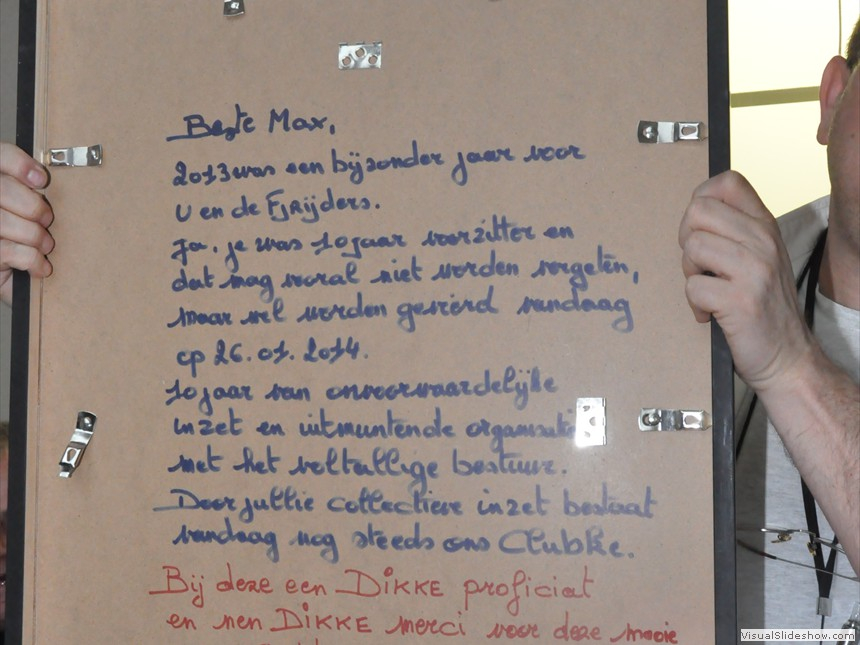 Beste Max,
2013 was een bijzonder jaar voor
U en de FJRijders.
Ja, je was 10 jaar voorzitter en
dat mag vooral niet worden vergeten,
maar wel worden gevierd vandaag
op 26.01.2014.
10 jaar van onvoorwaardelijke
inzet en uitmuntende
met het voltallige bestuur.
Door jullie collectieve inzet bestaat
vandaag nog steeds ons Clubke.
Bij deze een DIKKE proficiat
en nen DIKKE merci voor deze mooie
VisualSlideshow.com